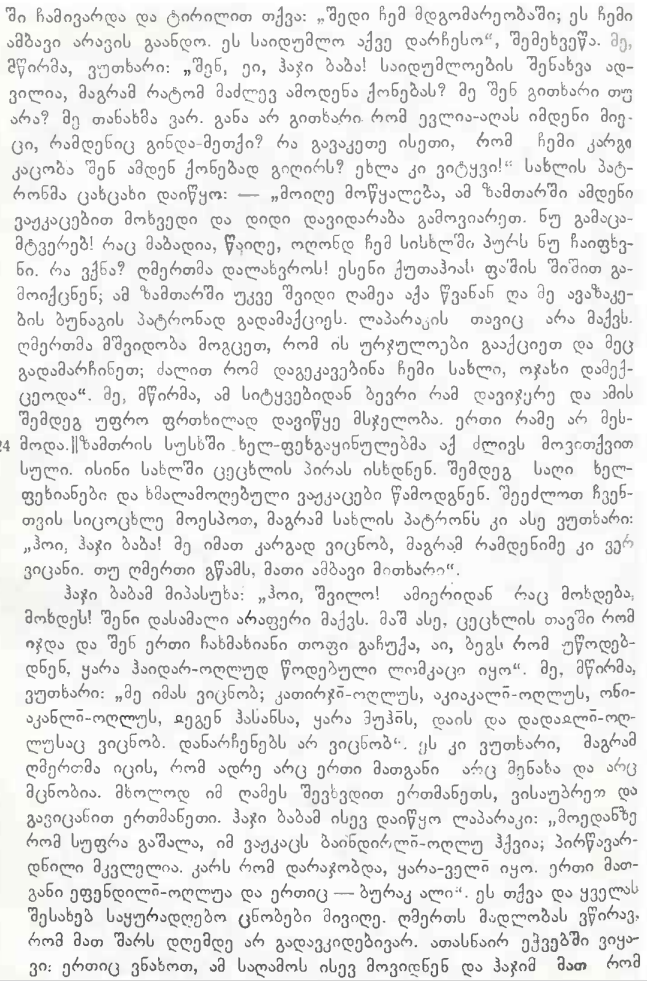 ში ჩამივარდა და ტირილით თქვა: „შედი ჩემ მდგომარეობაში; ეს ჩემი
ამბავი არავის გაანდო. ეს საიდუმლო აქვე დარჩესო“, შემეხვეწა. მე,
მწირმა, ვუთხარი: „შენ, ეი, ჰაჯი ბაბა! საიდუმლოების შენახვა ად-
ვილია, მაგრამ რატომ მაძლევ ამოდენა ქონებას? მე შენ გითხარი თუ
არა? მე თანახმა ვარ. განა არ გითხარი რომ ევლია-აღას იმდენი მიე-
ცი, რამდენიც გინდა-მეთქი? რა გავაკეთე ისეთი, რომ ჩემი კარგი
კაცობა შენ ამდენ ქონებად გიღირს? ეხლა კი ვიტყვი!“ სახლის პატ-
რონმა ცახცახი დაიწყო: — „მოიღე მოწყალება, ამ ზამთარში ამდენი
ვაჟკაცებით მოხვედი და დიდი დავიდარაბა გამოვიარეთ. ნუ გამაცა-
მტვერებ! რაც მაბადია, წაიღე, ოღონდ ჩემ სისხლში პურს ნუ ჩაიფხვ-
ნი. რა ვქნა? ღმერთმა დალახვროს! ესენი ქუთაჰიას ფაშის შიშით გა-
მოიქცნენ; ამ ზამთარში უკვე შვიდი ღამეა აქა წვანან და მე ავაზაკე-
ბის ბუნაგის პატრონად გადამაქციეს. ლაპარაკის თავიც არა მაქვს.
ღმერთმა მშვიდობა მოგცეთ, რომ ის ურჯულოები გააქციეთ და მეც
გადამარჩინეთ; ძალით რომ დაგეკავებინა ჩემი სახლი, ოჯახი დამექ-
ცეოდა“. მე, მწირმა, ამ სიტყვებიდან ბევრი რამ დავიჯერე და ამის
შემდეგ უფრო ფრთხილად დავიწყე მსჯელობა. ერთი რამე არ მეს-
24 მოდა.||ზამთრის სუსხში ხელ-ფეხგაყინულებმა აქ ძლივს მოვითქვით
სული. ისინი სახლში ცეცხლის პირას ისხდნენ. შემდეგ საღი ხელ-
ფეხიანები და ხმალამოღებული ვაჟკაცები წამოდგნენ. შეეძლოთ ჩვენ-
თვის სიცოცხლე მოესპოთ, მაგრამ სახლის პატრონს კი ასე ვუთხარი:
„ჰოი, ჰაჯი ბაბა! მე იმათ კარგად ვიცნობ, მაგრამ რამდენიმე კი ვერ
ვიცანი. თუ ღმერთი გწამს, მათი ამბავი მითხარი“.
ჰაჯი ბაბამ მიპასუხა: „ჰოი, შვილო! ამიერიდან რაც მოხდება,
მოხდეს! შენი დასამალი არაფერი მაქვს. მაშ ასე, ცეცხლის თავში რომ
იჯდა და შენ ერთი ჩახმახიანი თოფი გაჩუქა, აი, ბეგს რომ უწოდებ-
დნენ, ყარა ჰაიდარ-ოღლუდ წოდებული ლომკაცი იყო“. მე, მწირმა,
ვუთხარი: „მე იმას ვიცნობ; კათირჯი̄-ოღლუს, აკიაკალი̄-ოღლუს, ონი-
აკანლი̄-ოღლუს, ჲეგენ ჰასანსა, ყარა მუჰას, დაის და დადალი̄-ოღ-
ლუსაც ვიცნობ. დანარჩენებს არ ვიცნობ“. ეს კი ვუთხარი, მაგრამ
ღმერთმა იცის, რომ ადრე არც ერთი მათგანი არც მენახა და არც
მცნობია. მხოლოდ იმ ღამეს შევხვდით ერთმანეთს, ვისაუბრეთ და
გავიცანით ერთმანეთი. ჰაჯი ბაბამ ისევ დაიწყო ლაპარაკი: „მოედანზე
რომ სუფრა გაშალა, იმ ვაჟკაცს ბაინდირლი̄-ოღლუ ჰქვია; პირწავარ-
დნილი მკვლელია. კარს რომ დარაჯობდა, ყარა-ველი̄ იყო. ერთი მათ-
განი ეფენდილი̄-ოღლუა და ერთიც — ბურაკ ალი“. ეს თქვა და ყველას
შესახებ საყურადღებო ცნობები მივიღე. ღმერთს მადლობას ვწირავ,
რომ მათ შარს დღემდე არ გადავკიდებივარ. ათასნაირ ეჭვებში ვიყა-
ვი: ერთიც ვნახოთ, ამ საღამოს ისევ მოვიდნენ და ჰაჯიმ მათ რომ